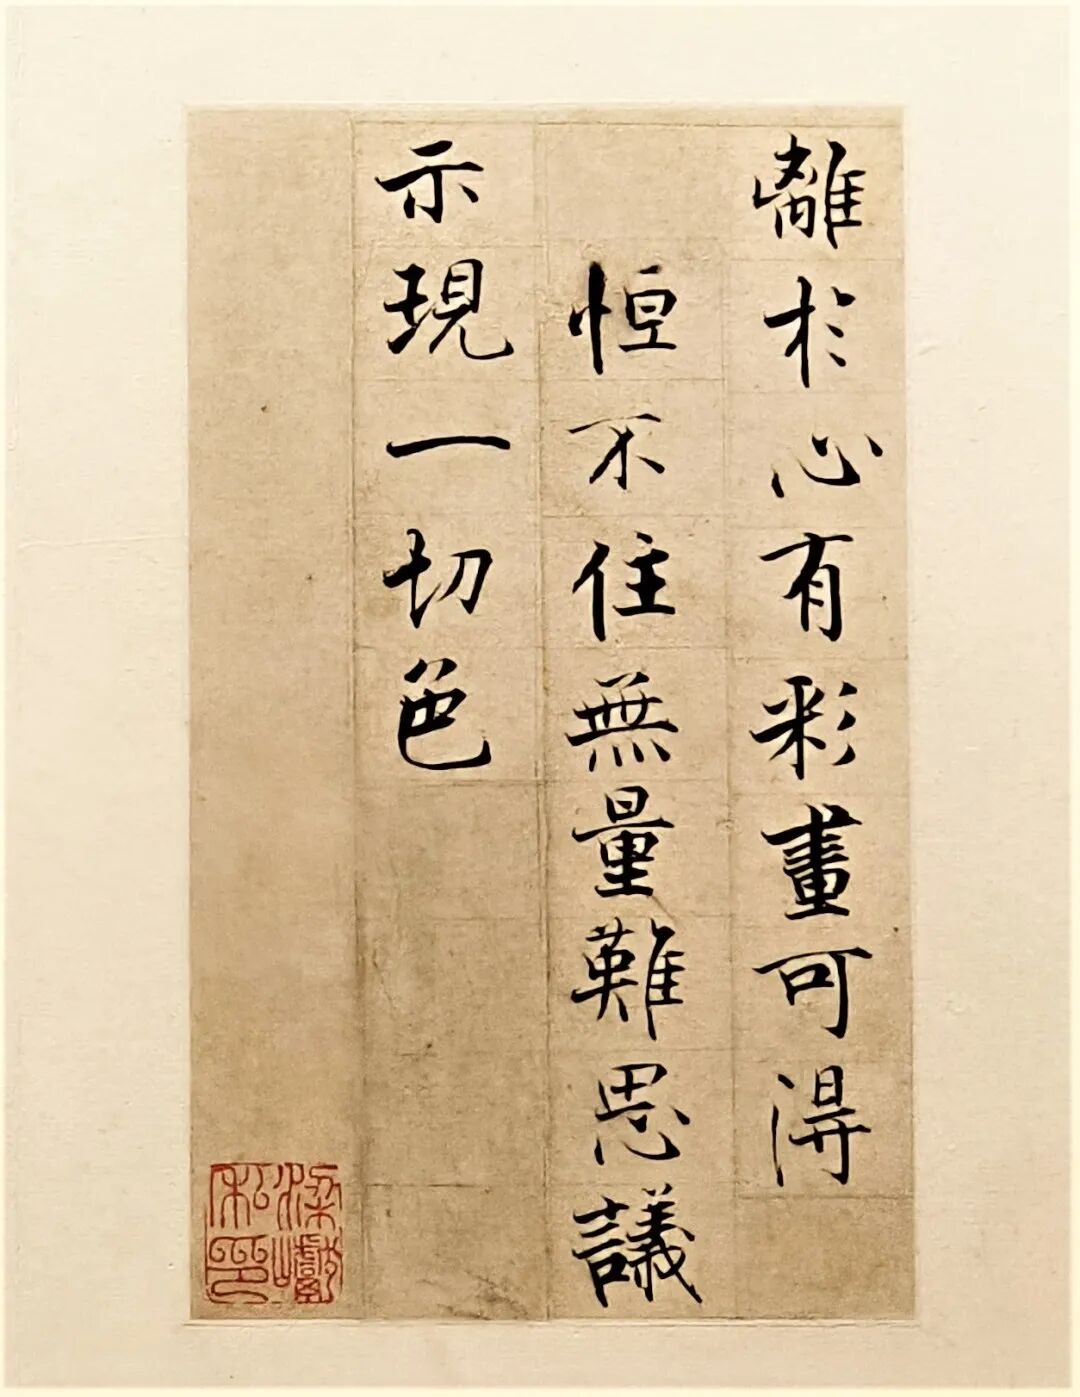 離於心有彩畫可得
恒不住無量難思議
示現一切色
梁巘
私印